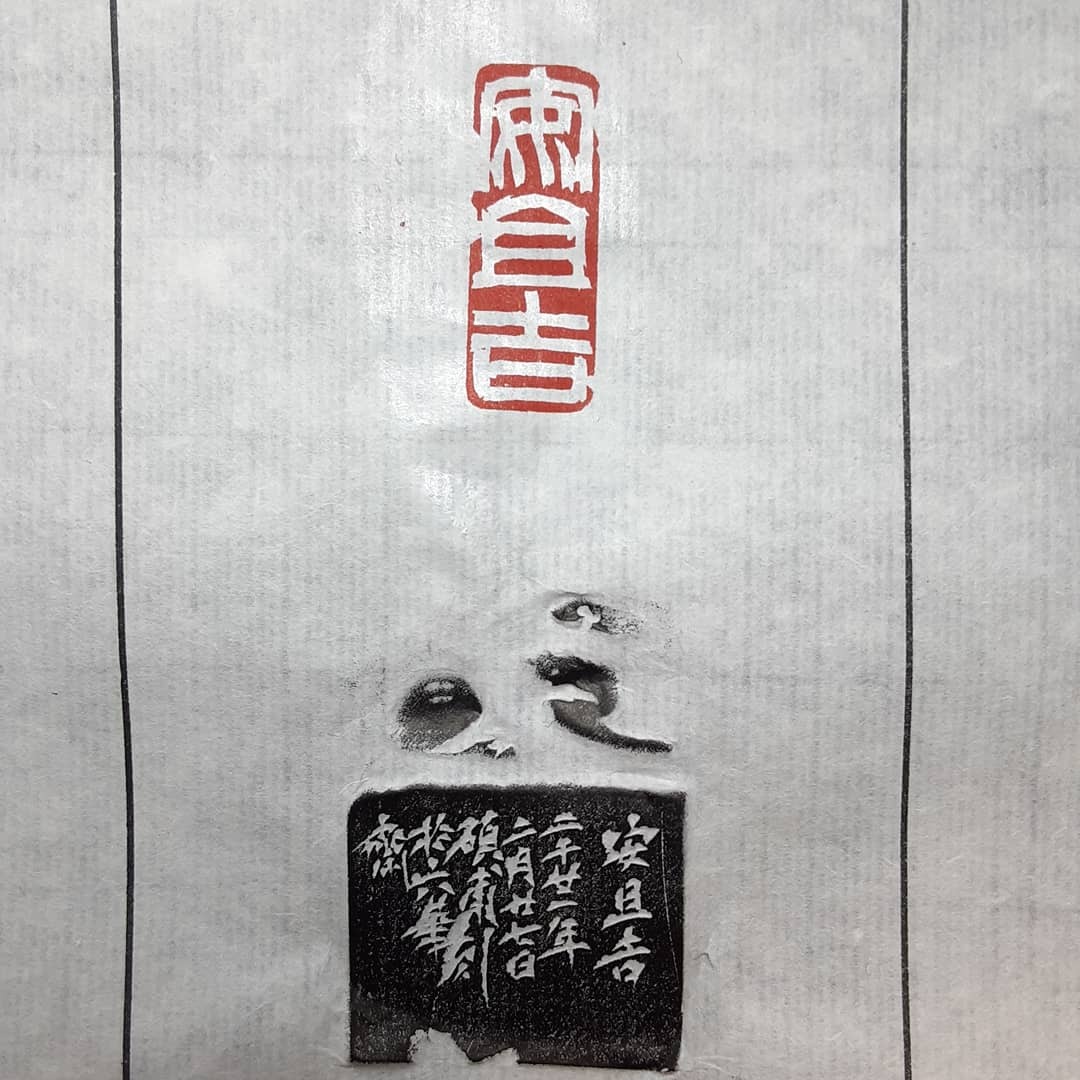 安且吉
安且吉
二千廿二年
二月廿七日
碩甫刻
於六華
齋